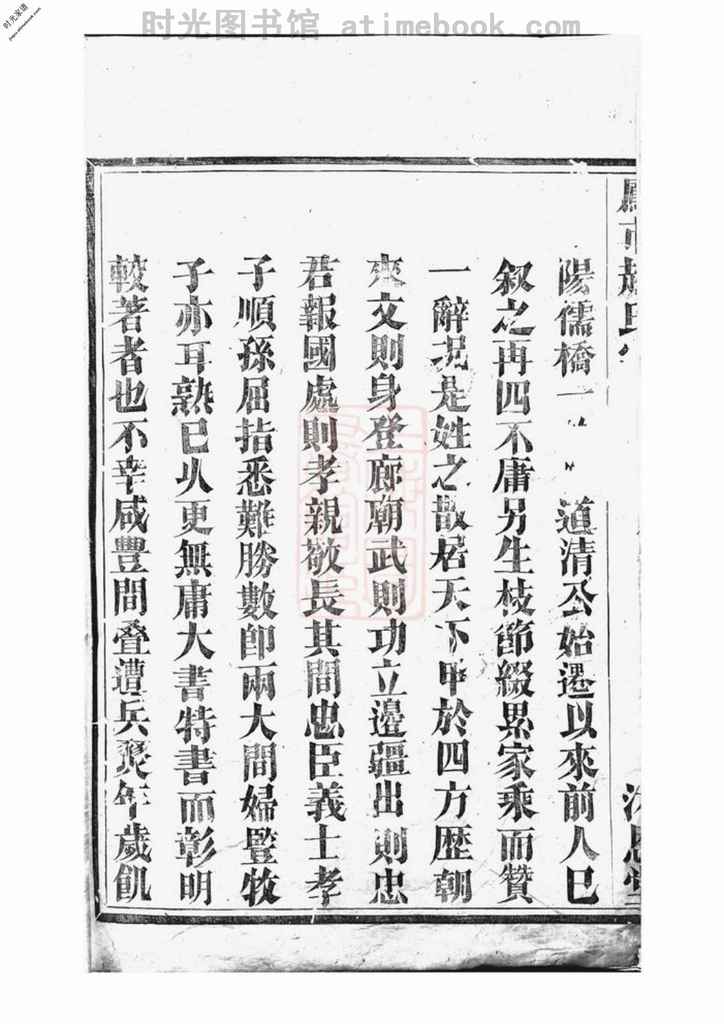 时光图书馆 atimebook.com
时光家谱
趙氏
陽儒橋一 道清公始遷以來前人巳
叙之再四不庸另生枝節綴累家乘而贊
一辭况是姓之散居天下甲於四方歴朝
來文則身登廊廟武則功立邊疆出則忠
君報國處則孝親敬長其間忠臣義士孝
子順孫屈指悉難勝數卽兩大間婦豎牧
子亦耳熟已乆更無庸大書特書而彰明
較著者也不幸咸豐間叠遭兵燹年歲飢